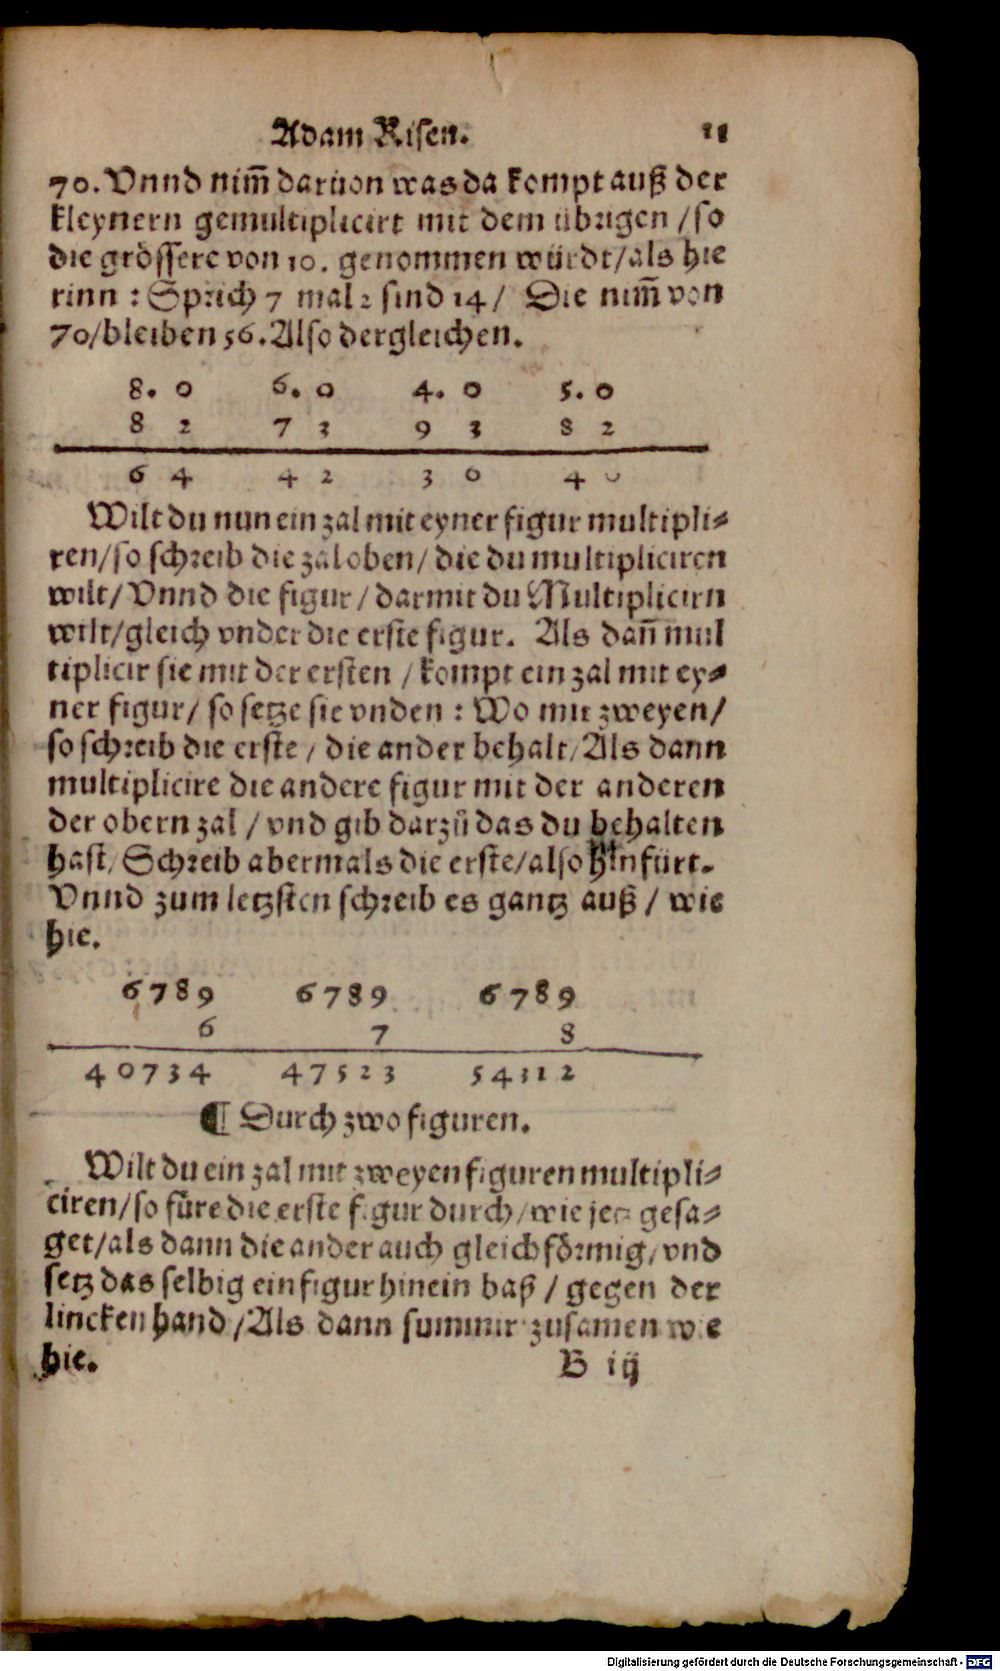 Adam Risen. 11
70. Vnnd nim̄ daruon was da kompt auß der
kleynern gemultiplicirt mit dem übrigen / so
die grössere von 10. genommen würdt/als hie
rinn : Sprich 7 mal 2 sind 14 / Die nim̄ von
70/bleiben 56. Also dergleichen.
8. 0 6. 0 4. 0 5. 0
8 2 7 3 9 3 8 2
6 4 4 2 3 6 4 0
Wilt du nun ein zal mit eyner figur multipli⸗
ren/so schreib die zal oben/ die du multipliciren
wilt/ Vnnd die figur / darmit du Multiplicirn
wilt/gleich vnder die erste figur. Als dañ mul
tiplicir sie mit der ersten / kompt ein zal mit ey⸗
ner figur/ so setze sie vnden : Wo mit zweyen/
so schreib die erste / die ander behalt/ Als dann
multiplicire die andere figur mit der anderen
der obern zal / vnd gib darzů das du behalten
hast/ Schreib abermals die erste/also hinfürt.
Vnnd zum letzsten schreib es gantz auß / wie
hie.
6789 6789 6789
6 7 8
40734 47523 54312
¶ Durch zwo figuren.
Wilt du ein zal mit zweyen figuren multipli⸗
ciren/so füre die erste figur durch/wie jetz gesa⸗
get/als dann die ander auch gleichförmig/vnd
setz das selbig ein figur hinein baß / gegen der
lincken hand /Als dann summir zusamen wie
hie. B iij
Digitalisierung gefördert durch die Deutsche Forschungsgemeinschaft - DFG